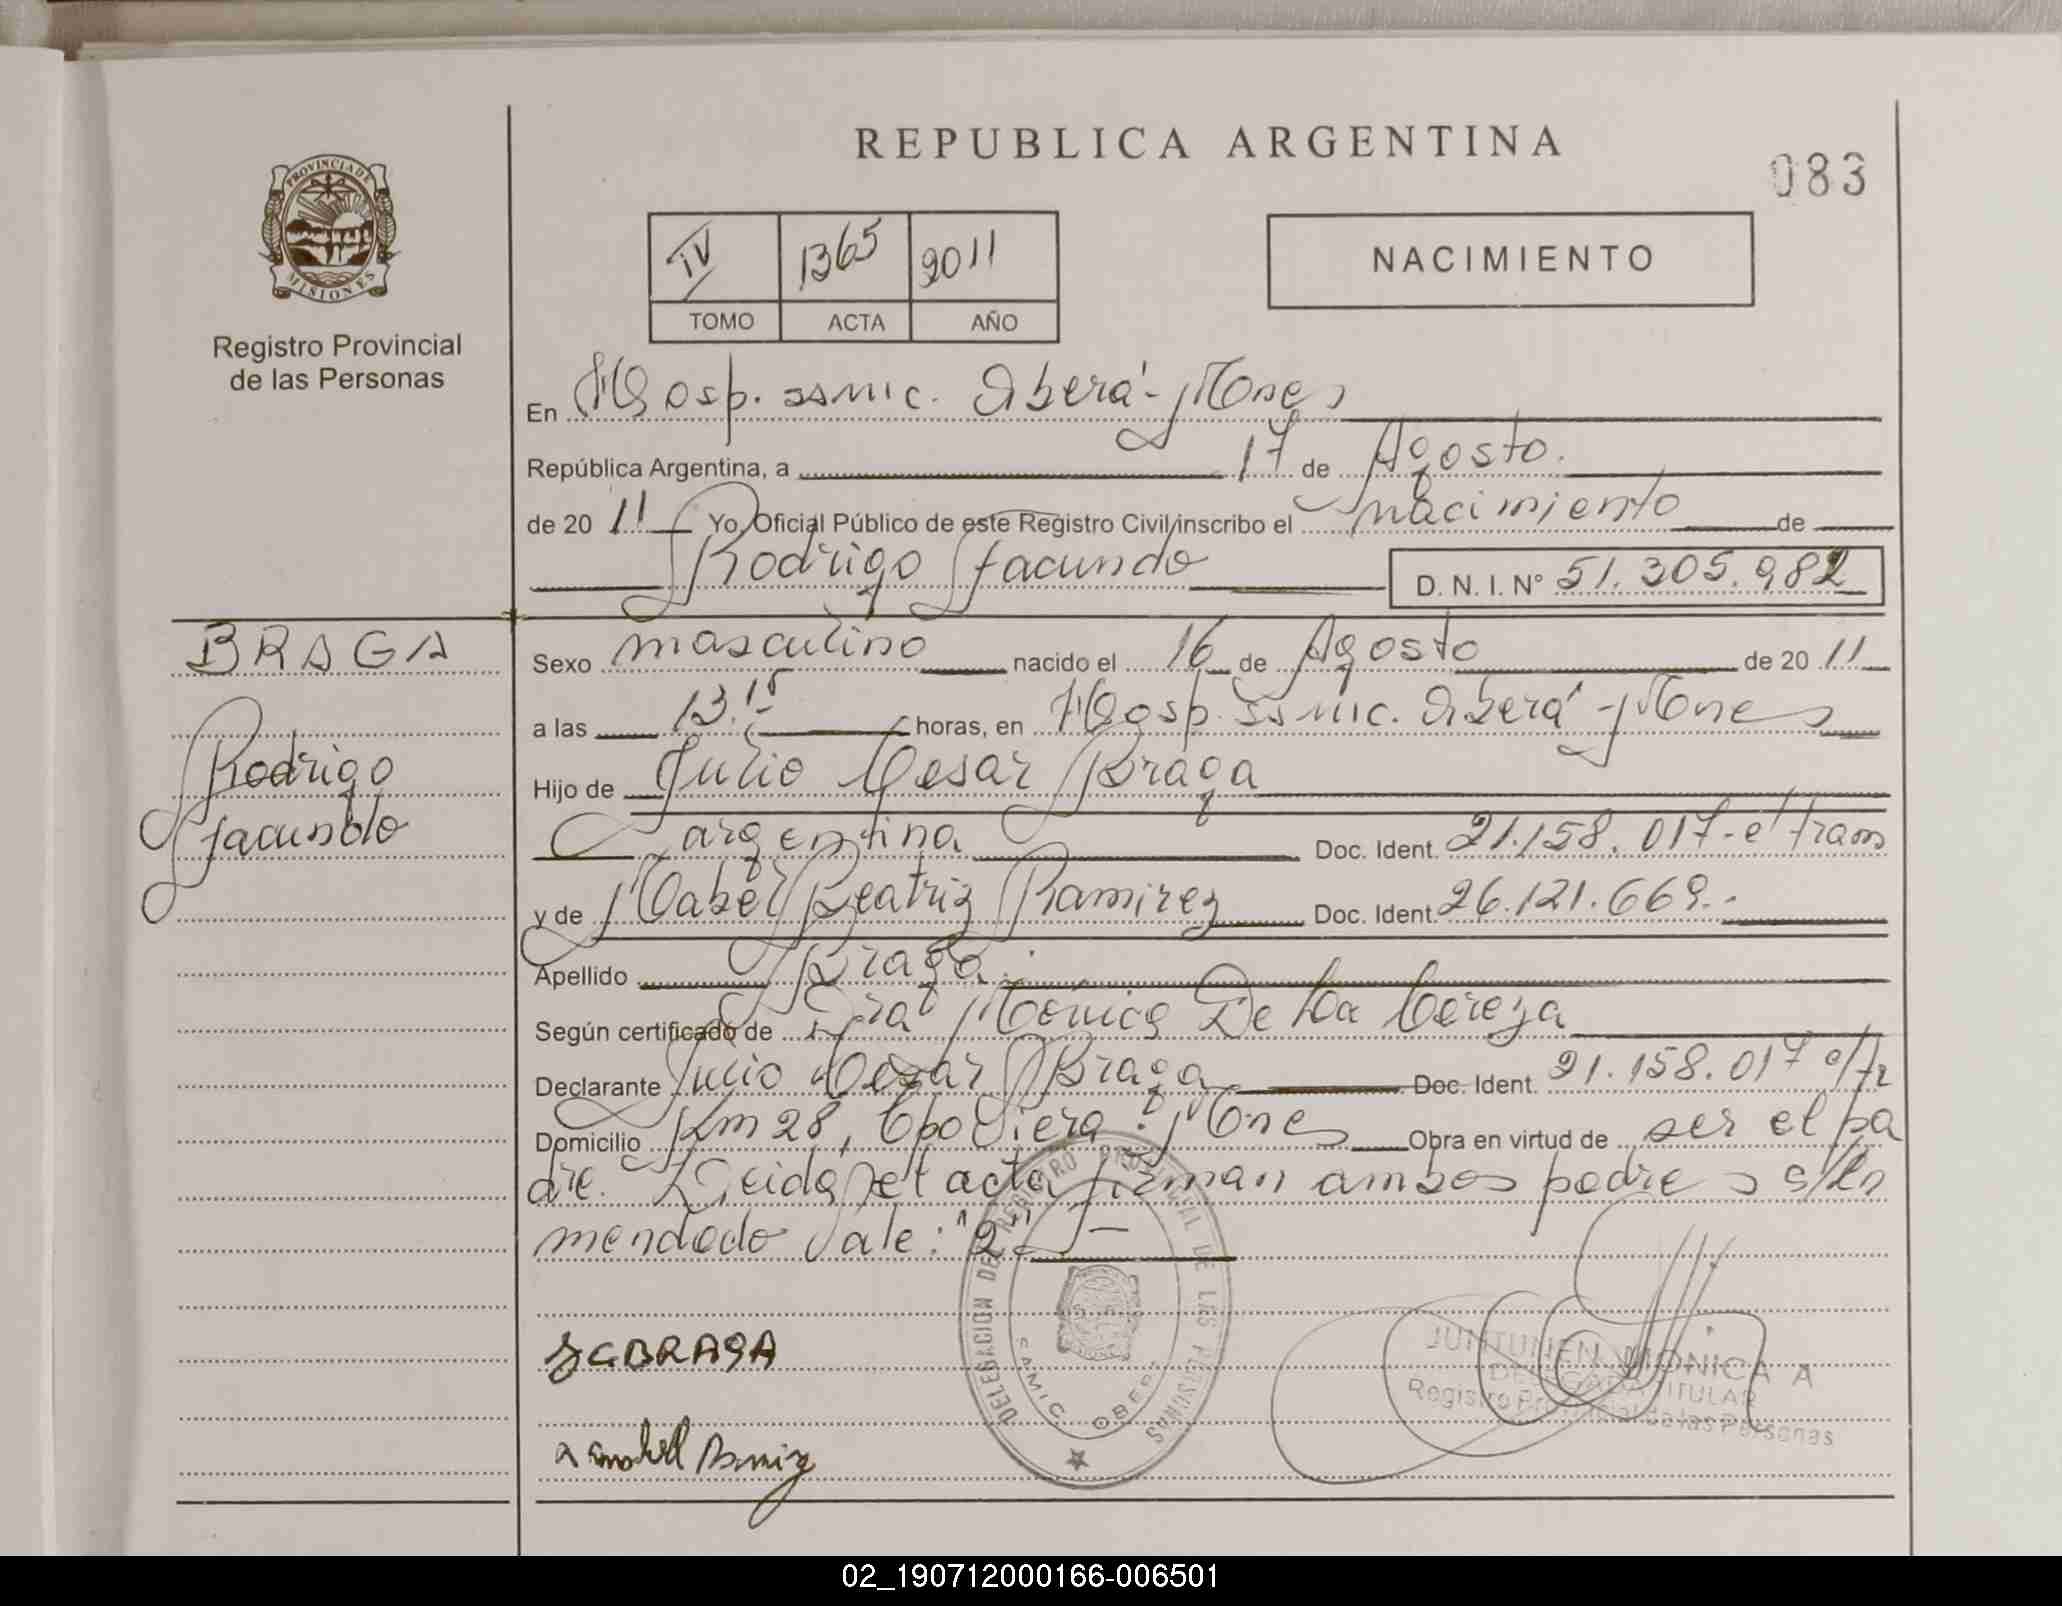 REPUBLICA ARGENTINA
083
PROVINCIA DE MISIONES
Registro Provincial
de las Personas
IV 1365 2011
TOMO ACTA AÑO
NACIMIENTO
En Hosp. Samic. Oberá - Mnes
República Argentina, a 17 de Agosto.
de 20 11 Yo, Oficial Público de este Registro Civil inscribo el nacimiento de
Rodrigo Facundo D. N. I. N° 51.305.982
BRAGA
Rodrigo
Facundo
Sexo masculino nacido el 16 de Agosto de 20 11
a las 13.15 horas, en Hosp. Samic. Oberá - Mnes
Hijo de Julio Cesar Braga
argentina Doc. Ident. 21.158.017 - e/tram
y de Mabel Beatriz Ramirez Doc. Ident. 26.121.669.-
Apellido Braga.
Según certificado de Dra Mónica De La Cereza
Declarante Julio Cesar Braga Doc. Ident. 21.158.017 e/tr
Domicilio Km 28, Cpo Viera. Mnes Obra en virtud de ser el pa
dre. Leida el acta firman ambos padres s/En
mendado Vale: "2"
JCBRAGA
Ramirez
DELEGACION DEL REGISTRO PROVINCIAL DE LAS PERSONAS
SAMIC OBERA
JUNTUNEN MONICA A
DELEGADA TITULAR
Registro Provincial de las Personas
02_190712000166-006501